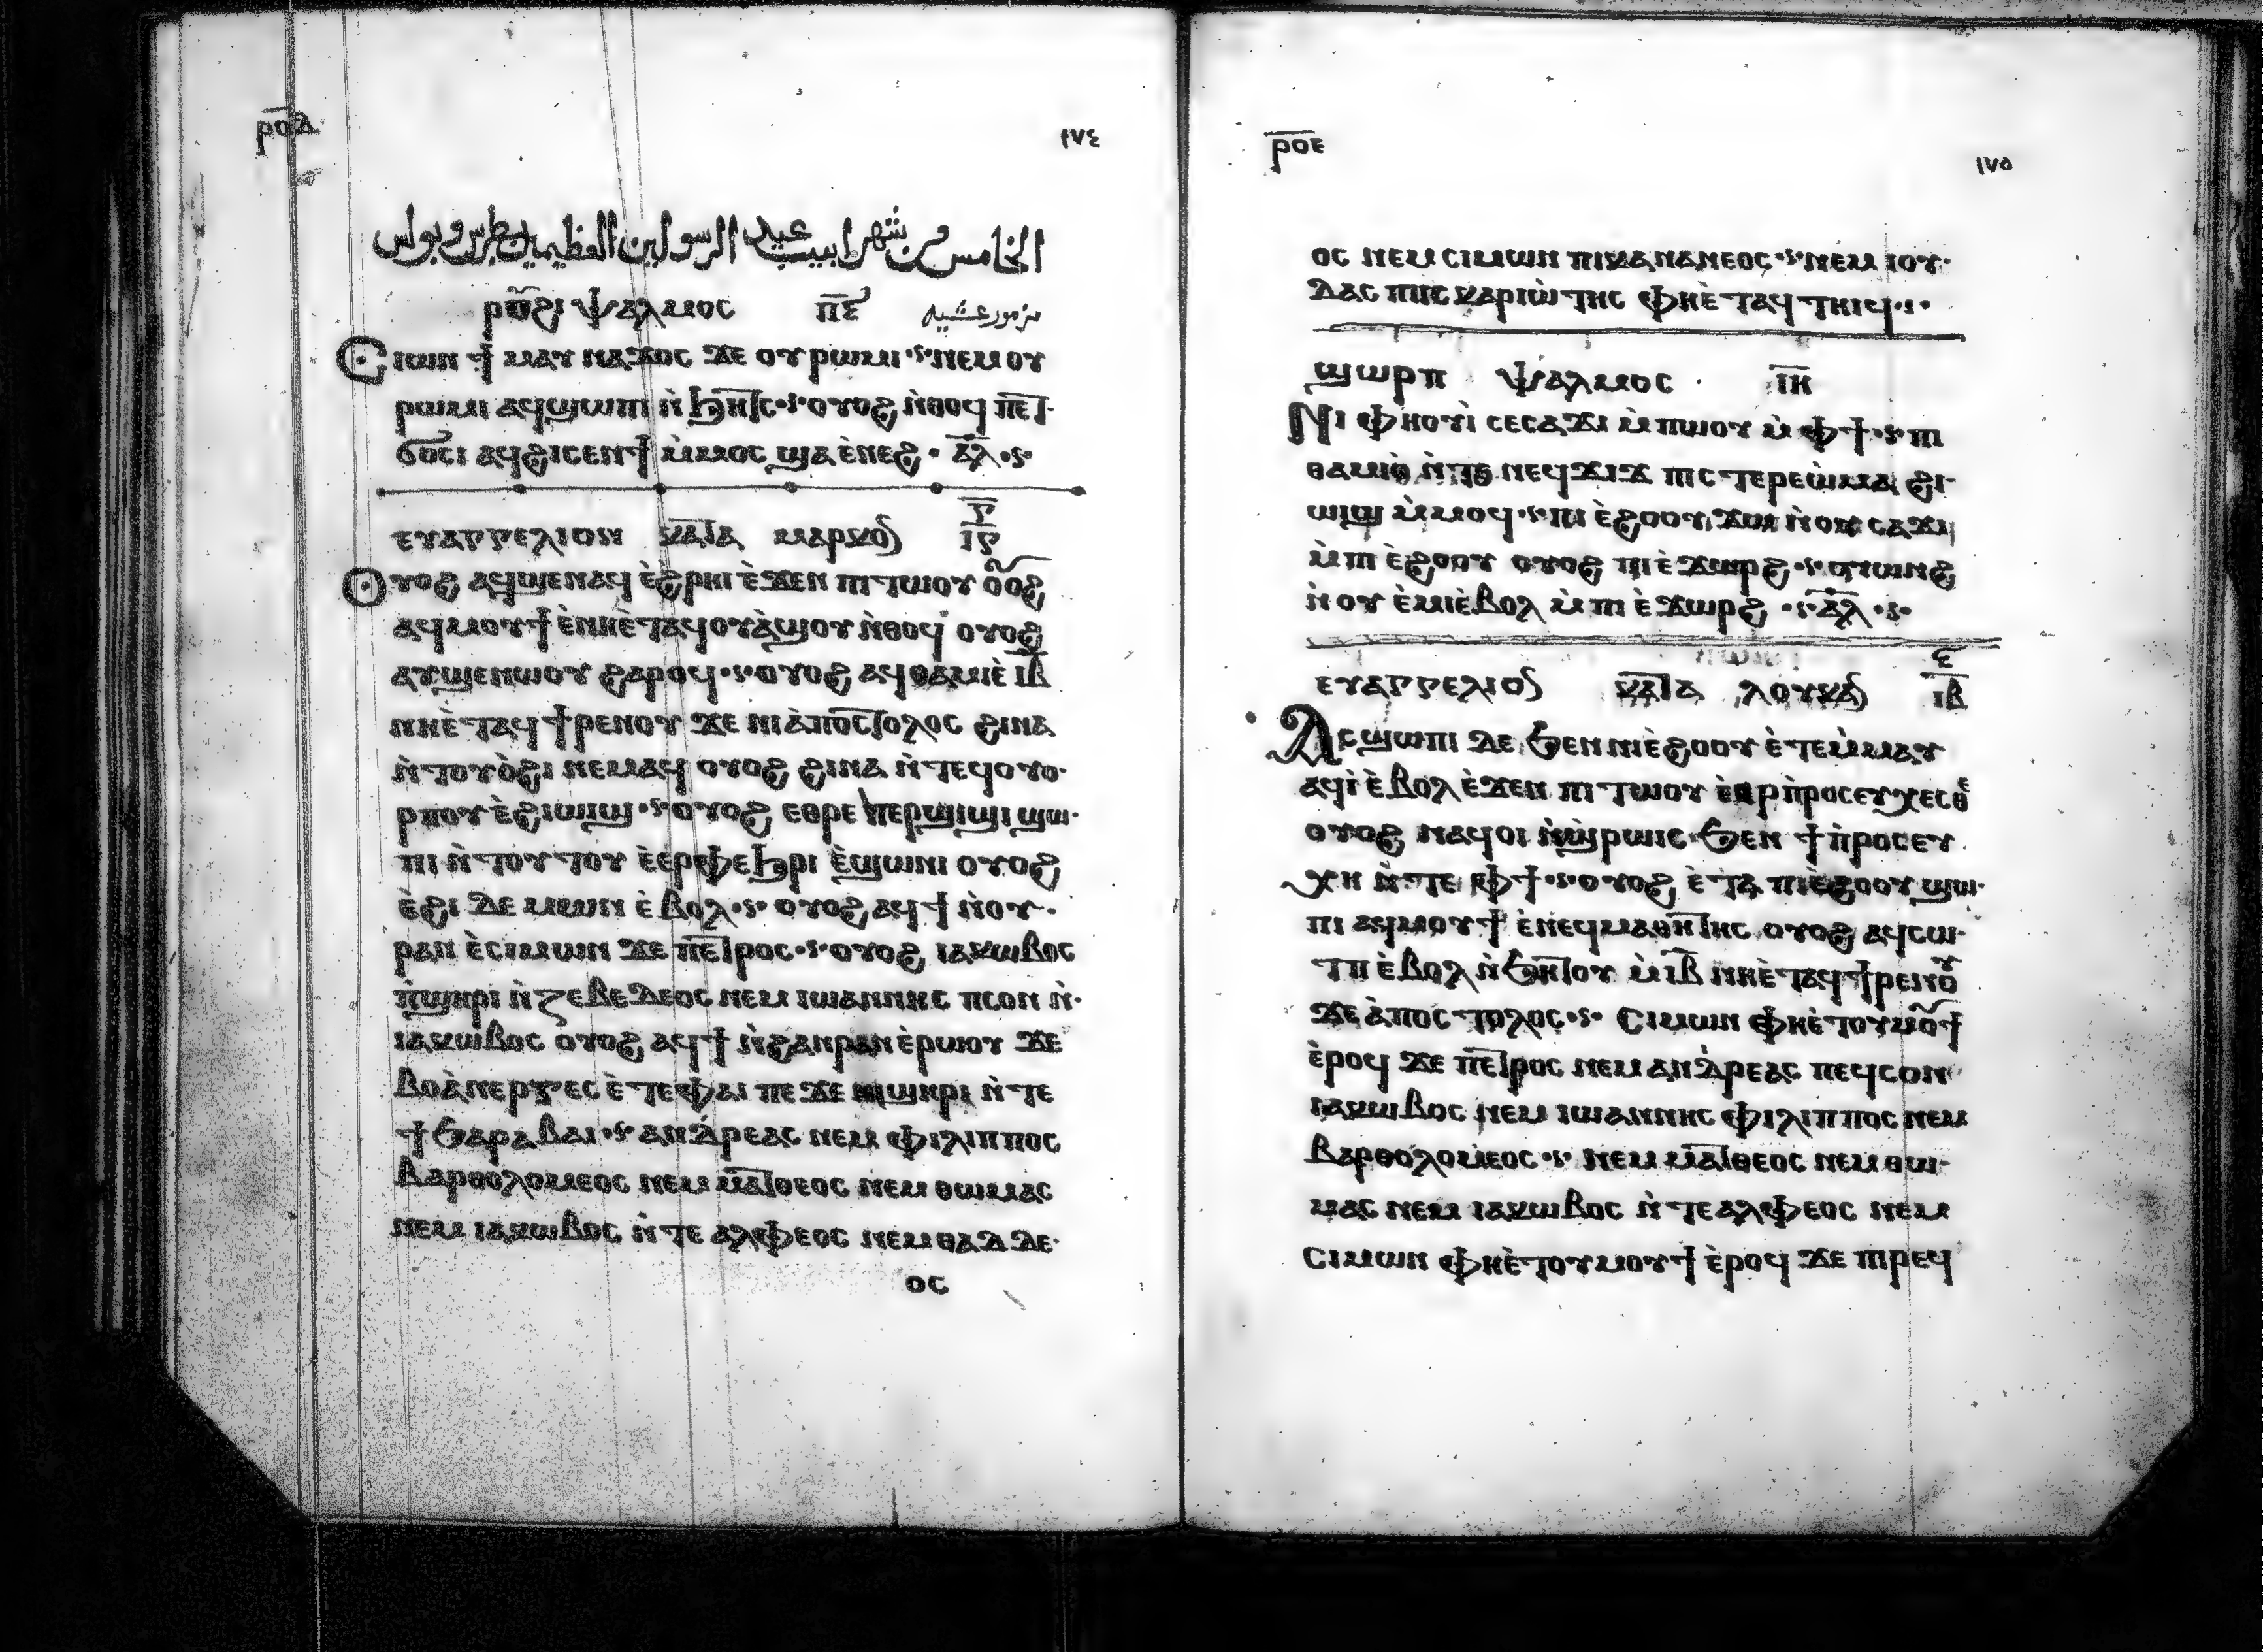 ⲣⲟⲇ ١٧٤
الخامس من شهر ابيب عيد الرسولين العظيمين بطرس وبولس
ⲣⲟⲩϩⲓ ⲯⲁⲗⲙⲟⲥ ⲡ̅ⲋ̅ مزمور عشيه
Ⲥⲓⲱⲛ ϯ ⲙⲁⲩ ⲛⲁϫⲟⲥ ϫⲉ ⲟⲩ ⲣⲱⲙⲓ ⲛⲉⲙ ⲟⲩ
ⲣⲱⲙⲓ ⲁϥϣⲱⲡⲓ ⲛ̀ϧⲏⲧⲥ ⲟⲩⲟϩ ⲛ̀ⲑⲟϥ ⲡⲉⲧ
ϭⲟⲥⲓ ⲁϥϩⲓⲥⲉⲛϯ ⲙ̀ⲙⲟⲥ ϣⲁ ⲉ̀ⲛⲉϩ ⲁ̅ⲗ̅
ⲉⲩⲁⲅⲅⲉⲗⲓⲟⲛ ⲕⲁⲧⲁ ⲙⲁⲣⲕⲟⲛ
Ⲟⲩⲟϩ ⲁϥϣⲉⲛⲁϥ ⲉ̀ϩⲣⲏⲓ ⲉ̀ϫⲉⲛ ⲡⲓ ⲧⲱⲟⲩ ⲟⲟϩ
ⲁϥⲙⲟⲩϯ ⲉ̀ⲛⲏⲉ̀ⲧⲁϥⲟⲩⲁ̀ϣⲟⲩ ⲛ̀ⲑⲟϥ ⲟⲩⲟϩ
ⲁⲩϣⲉⲛⲱⲟⲩ ϩⲁⲣⲟϥ ⲟⲩⲟϩ ⲁϥⲑⲁⲙⲓⲉ̀ ⲓ̅ⲃ̅
ⲛⲏⲉ̀ⲧⲁϥϯⲣⲉⲛⲟⲩ ϫⲉ ⲛⲓⲁ̀ⲡⲟⲥⲧⲟⲗⲟⲥ ϩⲓⲛⲁ
ⲛ̀ⲧⲟⲩⲟ̀ϩⲓ ⲛⲉⲙⲁϥ ⲟⲩⲟϩ ϩⲓⲛⲁ ⲛ̀ⲧⲉϥⲟⲩⲟ
ⲣⲡⲟⲩ ⲉ̀ϩⲓⲱⲓϣ ⲟⲩⲟϩ ⲉⲑⲣⲉ ⲡⲉⲣϣⲓϣⲓ ϣⲱ
ⲡⲓ ⲛ̀ⲧⲟⲩⲧⲟⲩ ⲉ̀ⲉⲣⲫⲉϧⲣⲓ ⲉ̀ϣⲱⲛⲓ ⲟⲩⲟϩ
ⲉ̀ϩⲓ ⲇⲉⲙⲱⲛ ⲉ̀ⲃⲟⲗ ⲟⲩⲟϩ ⲁϥϯ ⲛ̀ⲟⲩ
ⲣⲁⲛ ⲉ̀ⲥⲓⲙⲱⲛ ϫⲉ ⲡⲉⲧⲣⲟⲥ ⲟⲩⲟϩ ⲓⲁⲕⲱⲃⲟⲥ
ⲡ̀ϣⲏⲣⲓ ⲛ̀ⲍⲉⲃⲉⲇⲉⲟⲥ ⲛⲉⲙ ⲓⲱⲁⲛⲛⲏⲥ ⲡⲥⲟⲛ ⲛ̀
ⲓⲁⲕⲱⲃⲟⲥ ⲟⲩⲟϩ ⲁϥϯ ⲛ̀ϩⲁⲛⲣⲁⲛ ⲉ̀ⲣⲱⲟⲩ ϫⲉ
ⲃⲟⲁ̀ⲛⲉⲣⲅⲉⲥ ⲉ̀ⲧⲉⲫⲁⲓ ⲡⲉ ϫⲉ ⲛⲓϣⲏⲣⲓ ⲛ̀ⲧⲉ
ϯϧⲁⲣⲁⲃⲁⲓ ⲁⲛⲇⲣⲉⲁⲥ ⲛⲉⲙ ⲫⲓⲗⲓⲡⲡⲟⲥ
ⲃⲁⲣⲑⲟⲗⲟⲙⲉⲟⲥ ⲛⲉⲙ ⲙⲁⲧⲑⲉⲟⲥ ⲛⲉⲙ ⲑⲱⲙⲁⲥ
ⲛⲉⲙ ⲓⲁⲕⲱⲃⲟⲥ ⲛ̀ⲧⲉ ⲁⲗⲫⲉⲟⲥ ⲛⲉⲙ ⲑⲁⲇⲇⲉ
ⲟⲥ
ⲣⲟⲉ ١٧٥
ⲟⲥ ⲛⲉⲙ ⲥⲓⲙⲱⲛ ⲡⲓⲕⲁⲛⲁⲛⲉⲟⲥ ⲛⲉⲙ ⲓⲟⲩ
ⲇⲁⲥ ⲡⲓⲥⲕⲁⲣⲓⲱ̀ⲧⲏⲥ ⲫⲏⲉ̀ⲧⲁϥⲧⲏⲓϥ
ϣⲱⲣⲡ ⲯⲁⲗⲙⲟⲥ ⲓ̅ⲏ̅
Ⲛⲓ ⲫⲏⲟⲩⲓ̀ ⲥⲉⲥⲁϫⲓ ⲙ̀ⲡⲱⲟⲩ ⲙ̀ⲫϯ ⲡⲓ
ⲑⲁⲙⲓⲟ̀ ⲛ̀ⲧⲉ ⲛⲉϥϫⲓϫ ⲡⲓⲥⲧⲉⲣⲉⲱ̀ⲙⲁ ϩⲓ
ⲱⲓϣ ⲙ̀ⲙⲟϥ ⲡⲓ ⲉ̀ϩⲟⲟⲩ ϫⲱ ⲛ̀ⲟⲩ ⲥⲁϫⲓ
ⲙ̀ⲡⲓ ⲉ̀ϩⲟⲟⲩ ⲟⲩⲟϩ ⲡⲓⲉ̀ϫⲱⲣϩ ϥⲟⲩⲱⲛϩ
ⲛ̀ⲟⲩ ⲉ̀ⲙⲓⲉ̀ⲃⲟⲗ ⲙ̀ⲡⲓ ⲉ̀ϫⲱⲣϩ ⲁ̅ⲗ̅
ⲉⲩⲁⲅⲅⲉⲗⲓⲟⲛ ⲕⲁⲧⲁ ⲗⲟⲩⲕⲁⲛ
Ⲁⲥϣⲱⲡⲓ ⲇⲉ ϧⲉⲛ ⲛⲓⲉ̀ϩⲟⲟⲩ ⲉ̀ⲧⲉⲙ̀ⲙⲁⲩ
ⲁϥⲓ̀ ⲉ̀ⲃⲟⲗ ⲉ̀ϫⲉⲛ ⲡⲓ ⲧⲱⲟⲩ ⲉ̀ⲉⲣⲡ̀ⲣⲟⲥⲉⲩⲭⲉⲥⲑⲉ
ⲟⲩⲟϩ ⲛⲁϥⲟⲓ ⲛ̀ϣⲣⲱⲓⲥ ϧⲉⲛ ϯⲡ̀ⲣⲟⲥⲉⲩ
ⲭⲏ ⲛ̀ⲧⲉ ⲫϯ ⲟⲩⲟϩ ⲉ̀ⲧⲁ ⲡⲓⲉ̀ϩⲟⲟⲩ ϣⲱ
ⲡⲓ ⲁϥⲙⲟⲩϯ ⲉ̀ⲛⲉϥⲙⲁⲑⲏⲧⲏⲥ ⲟⲩⲟϩ ⲁϥⲥⲱ
ⲧⲡ ⲉ̀ⲃⲟⲗ ⲛ̀ϧⲏⲧⲟⲩ ⲙ̀ⲓ̅ⲃ̅ ⲛⲏⲉ̀ⲧⲁϥϯⲣⲉⲛⲟⲩ
ϫⲉ ⲁ̀ⲡⲟⲥⲧⲟⲗⲟⲥ Ⲥⲓⲙⲱⲛ ⲫⲏⲉ̀ⲧⲟⲩⲙⲟϯ
ⲉ̀ⲣⲟϥ ϫⲉ ⲡⲉⲧⲣⲟⲥ ⲛⲉⲙ ⲁⲛⲇⲣⲉⲁⲥ ⲡⲉϥⲥⲟⲛ
ⲓⲁⲕⲱⲃⲟⲥ ⲛⲉⲙ ⲓⲱⲁⲛⲛⲏⲥ ⲫⲓⲗⲓⲡⲡⲟⲥ ⲛⲉⲙ
ⲃⲁⲣⲑⲟⲗⲟⲙⲉⲟⲥ ⲛⲉⲙ ⲙⲁⲧⲑⲉⲟⲥ ⲛⲉⲙ ⲑⲱ
ⲙⲁⲥ ⲛⲉⲙ ⲓⲁⲕⲱⲃⲟⲥ ⲛ̀ⲧⲉ ⲁⲗⲫⲉⲟⲥ ⲛⲉⲙ
ⲥⲓⲙⲱⲛ ⲫⲏⲉ̀ⲧⲟⲩⲙⲟⲩϯ ⲉ̀ⲣⲟϥ ϫⲉ ⲡⲓⲣⲉϥ